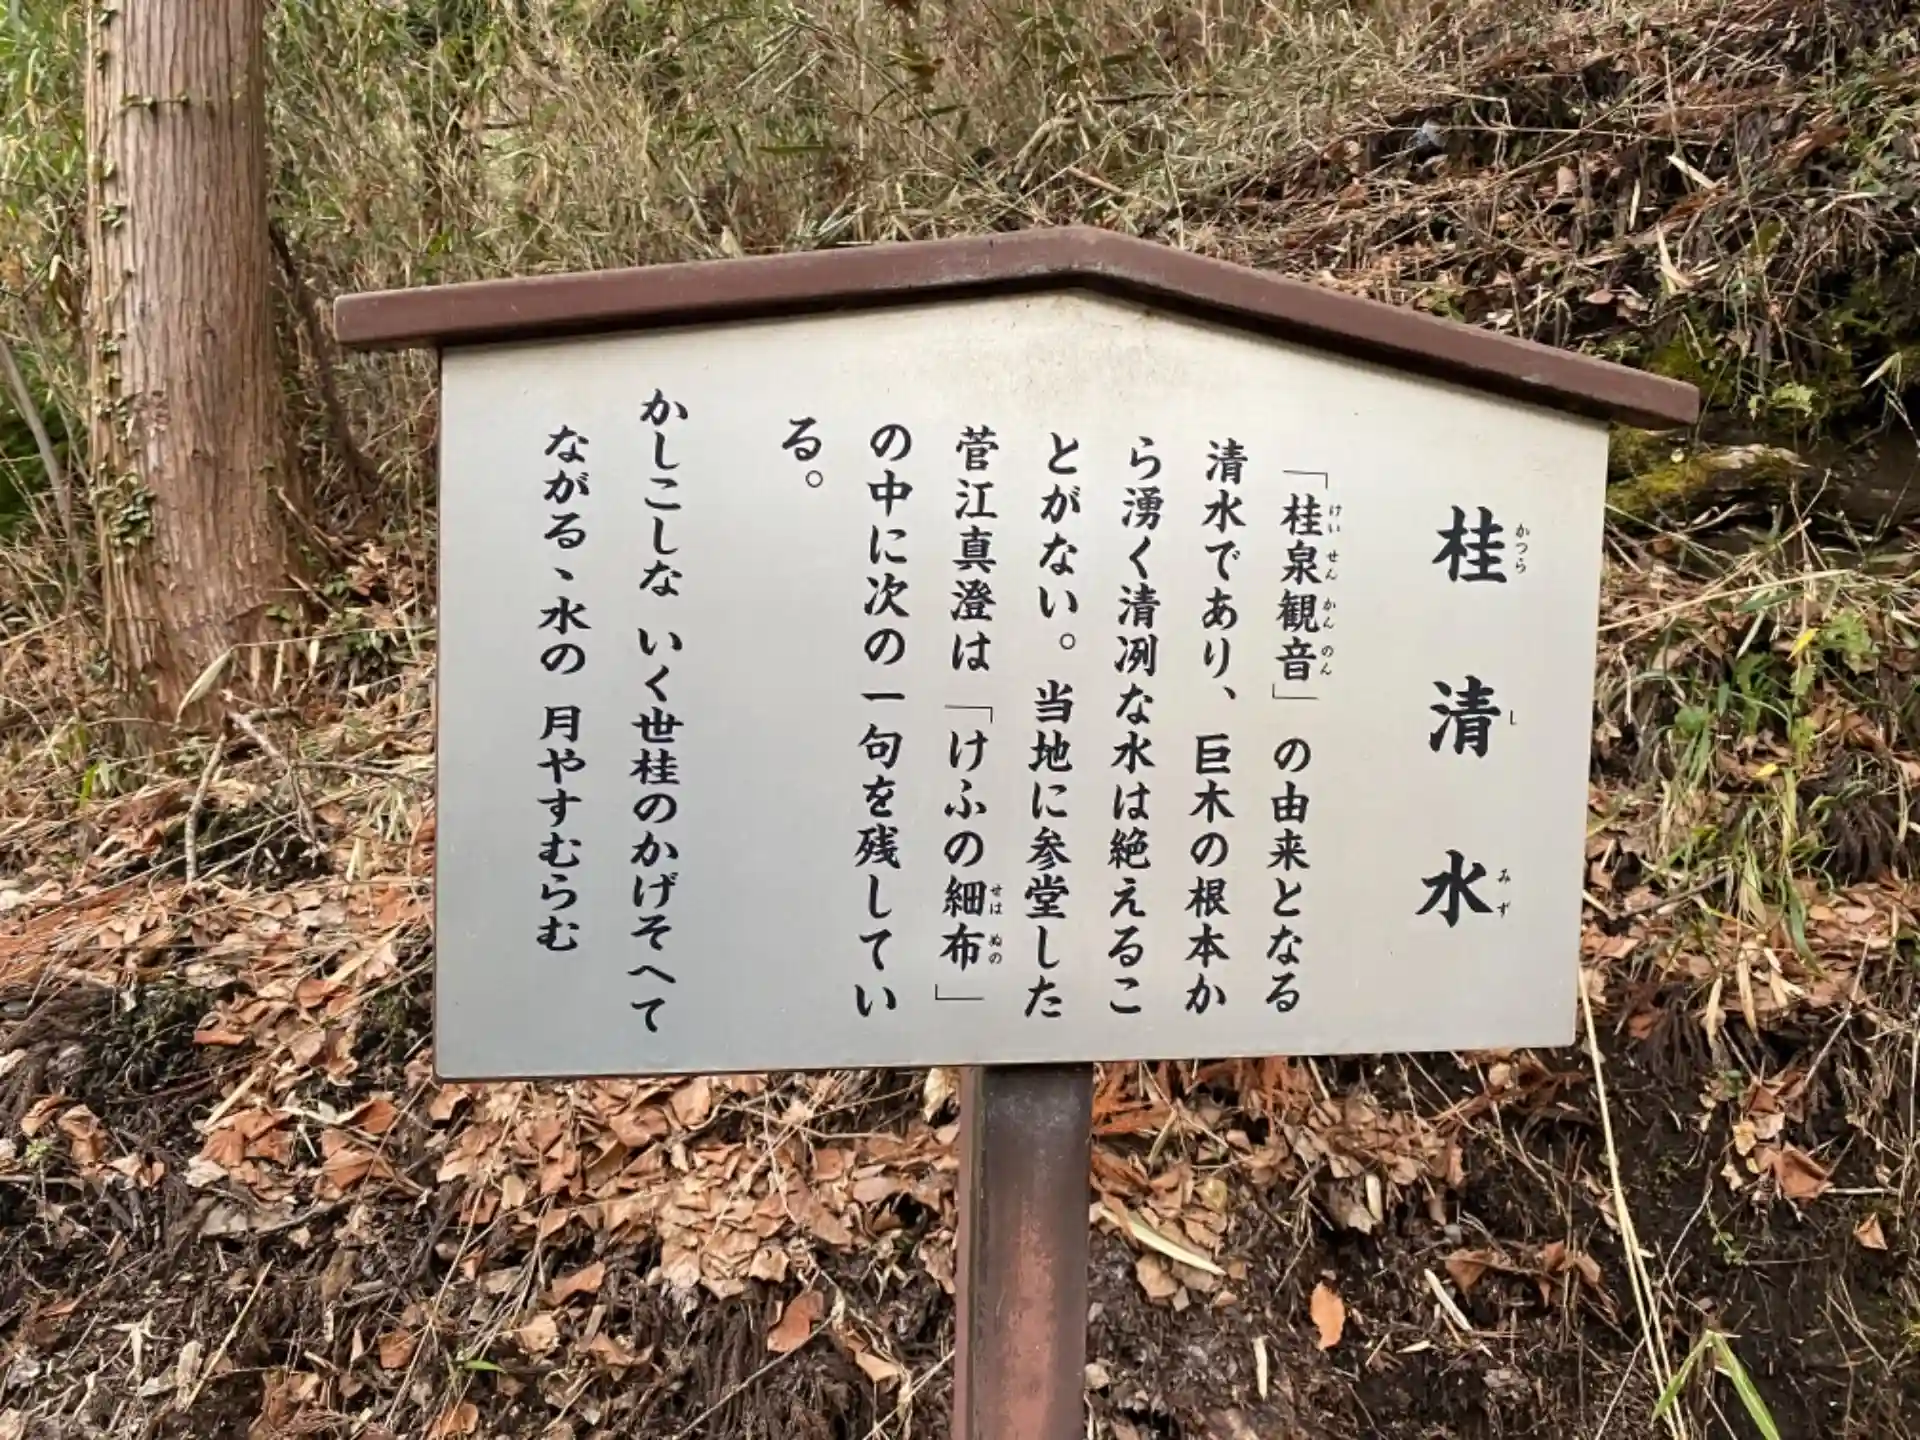 桂清水
「桂泉観音」の由来となる
清水であり、巨木の根本か
ら湧く清冽な水は絶えるこ
とがない。当地に参堂した
菅江真澄は「けふの細布」
の中に次の一句を残してい
る。
かしこしな いく世桂のかげそへて
ながるゝ水の 月やすむらむ